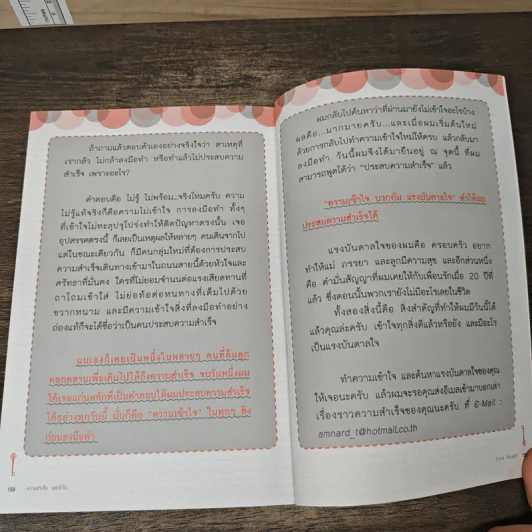 ถ้าถามแล้วตอบตัวเองอย่างจริงใจว่า สาเหตุที่
เรากลัว ไม่กล้าลงมือทำ หรือทำแล้วไม่ประสบความ
สำเร็จ เพราะอะไร?
คำตอบคือ ไม่รู้ ไม่พร้อม...จริงไหมครับ ความ
ไม่รู้แท้จริงก็คือความไม่เข้าใจ การลงมือทำ ทั้งๆ
ที่เข้าใจไม่ทะลุปรุโปร่งทำให้ติดปัญหาตรงนั้น เจอ
อุปสรรคตรงนี้ ก็เลยเป็นเหตุผลให้หลายๆ คนเดินจากไป
แต่ในขณะเดียวกัน ก็มีคนกลุ่มใหม่ที่ต้องการประสบ
ความสำเร็จเดินทางเข้ามาในถนนสายนี้ด้วยหัวใจและ
ศรัทธาที่มั่นคง ใครที่ไม่ยอมจำนนต่อแรงเสียดทานที่
ถาโถมเข้าใส่ ไม่ย่อท้อต่อหนทางที่เต็มไปด้วย
ขวากหนาม และมีความเข้าใจสิ่งที่ลงมือทำอย่าง
ถ่องแท้ก็จะได้ชื่อว่าเป็นคนประสบความสำเร็จ
ผมเองก็เคยเป็นหนึ่งในหลายๆ คนที่ล้มลุก
คลุกคลานเพื่อเดินไปให้ถึงความสำเร็จ จนวันหนึ่งผม
ได้เจอแก่นหลักที่เป็นคำตอบให้ผมประสบความสำเร็จ
ได้อย่างทุกวันนี้ นั่นก็คือ "ความเข้าใจ" ในทุกๆ สิ่ง
ก่อนลงมือทำ
158 ความสำเร็จ
ผมกลับไปค้นหาว่าที่ผ่านมายังไม่เข้าใจอะไรบ้าง
ผลคือ...มากมายครับ...และเมื่อผมเริ่มต้นใหม่
ด้วยการกลับไปทำความเข้าใจใหม่ให้ครบ แล้วกลับมา
ลงมือทำ วันนี้ผมจึงได้มายืนอยู่ ณ จุดนี้ ที่ผม
สามารถพูดได้ว่า "ประสบความสำเร็จ" แล้ว
"ความเข้าใจ บวกกับ แรงบันดาลใจ" ทำให้ผม
ประสบความสำเร็จได้
แรงบันดาลใจของผมคือ ครอบครัว อยาก
ทำให้แม่ ภรรยา และลูกมีความสุข และอีกส่วนหนึ่ง
คือ คำมั่นสัญญาที่ผมเคยให้กับเพื่อนรักเมื่อ 20 ปีที่
แล้ว ซึ่งตอนนั้นพวกเรายังไม่มีอะไรเลยในชีวิต
ทั้งสองสิ่งนี้คือ สิ่งสำคัญที่ทำให้ผมมีวันนี้ได้
แล้วคุณล่ะครับ เข้าใจทุกสิ่งดีแล้วหรือยัง และมีอะไร
เป็นแรงบันดาลใจ
ทำความเข้าใจ และค้นหาแรงบันดาลใจของคุณ
ให้เจอนะครับ แล้วผมจะรอคุณส่งอีเมลเข้ามาบอกเล่า
เรื่องราวความสำเร็จของคุณนะครับ ที่ E-Mail :
amnard_t@hotmail.co.th